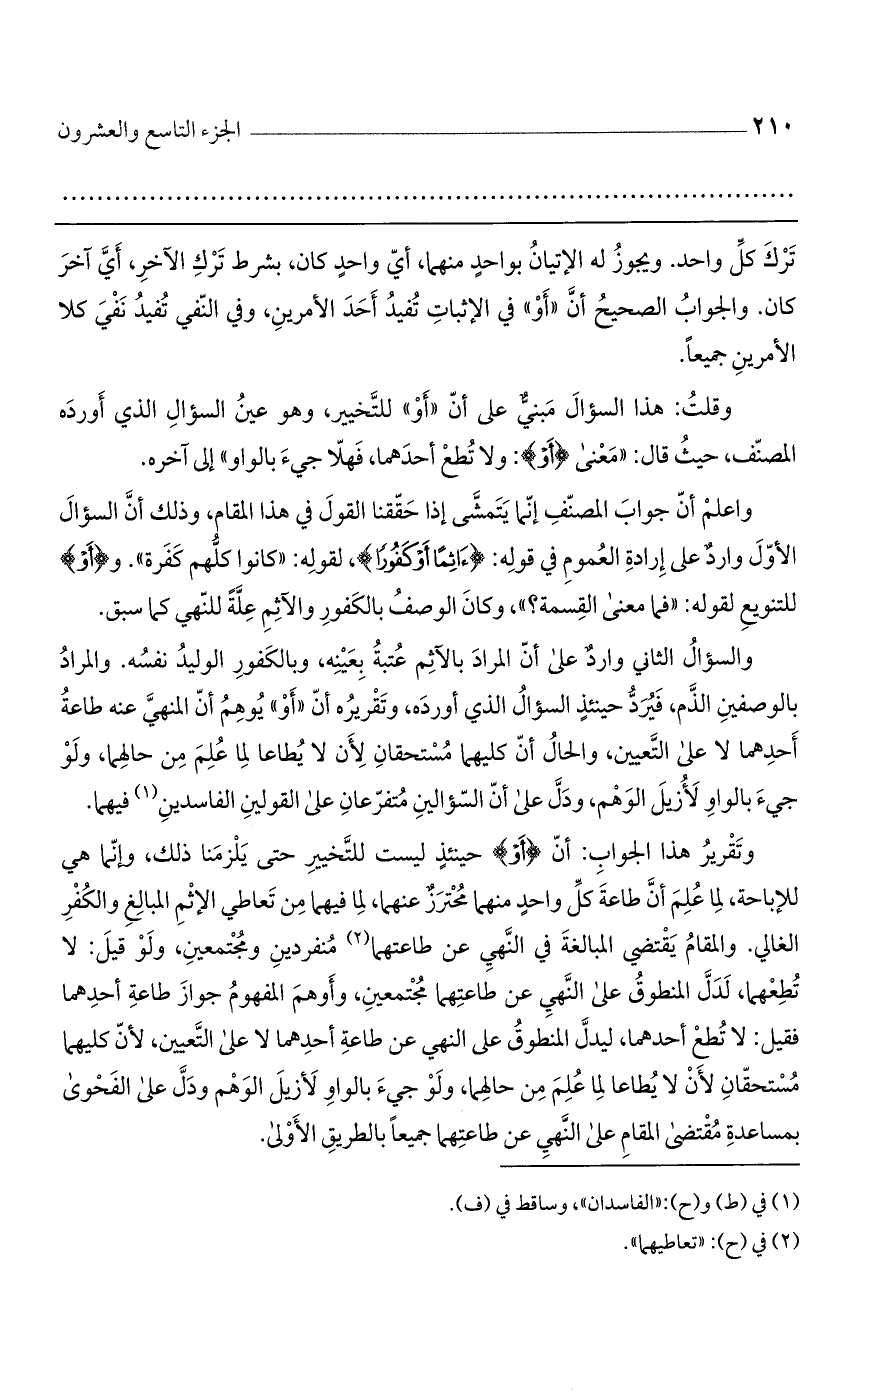 ٢١٠ الجزء التاسع والعشرون
تَرْكَ كلِّ واحد. ويجوزُ له الإتيانُ بواحدٍ منهما، أيّ واحدٍ كان، بشرط تَرْكِ الآخرِ، أيَّ آخرَ
كان. والجوابُ الصحيحُ أنَّ «أَوْ» في الإثباتِ تُفيدُ أَحَدَ الأمرينِ، وفي النّفي تُفيدُ نَفْيَ كلا
الأمرينِ جميعاً.
وقلتُ: هذا السؤالَ مَبنيٌّ على أنّ «أَوْ» للتَّخيير، وهو عينُ السؤالِ الذي أوردَه
المصنّف، حيثُ قال: «مَعْنىٰ ﴿أَوْ﴾: ولا تُطعْ أحدَهما، فَهلّا جيءَ بالواو» إلى آخره.
واعلمْ أنّ جوابَ المصنّفِ إنّما يَتَمشَّى إذا حَقّقنا القولَ في هذا المقام، وذلك أنَّ السؤالَ
الأوّلَ واردٌ على إرادةِ العُمومِ في قولِه: ﴿ءَاثِمًا أَوْ كَفُورًا﴾، لقولِه: «كانوا كلُّهم كَفَرة». و﴿أَوْ﴾
للتنويعِ لقوله: «فما معنىٰ القِسمة؟»، وكانَ الوصفُ بالكَفورِ والآثِمِ عِلَّةً للنّهي كما سبق.
والسؤالُ الثاني واردٌ علىٰ أنّ المرادَ بالآثِم عُتبةُ بِعَيْنِه، وبالكَفورِ الوليدُ نفسُه. والمرادُ
بالوصفينِ الذَّم، فَيُرَدُّ حينئذٍ السؤالُ الذي أوردَه، وتَقْريرُه أنّ «أَوْ» يُوهِمُ أنّ المنهيَّ عنه طاعةُ
أَحدِهما لا علىٰ التَّعيين، والحالُ أنّ كليهما مُسْتحقانِ لِأن لا يُطاعا لِما عُلِمَ مِن حالِهما، ولَوْ
جيءَ بالواوِ لَأُزيلَ الوَهْم، ودَلَّ علىٰ أنّ السّؤالينِ مُتفرّعانِ علىٰ القولينِ الفاسدينِ(١) فيهما.
وتَقْريرُ هذا الجوابِ: أنّ ﴿أَوْ﴾ حينئذٍ ليست للتَّخييرِ حتى يَلْزمَنا ذلك، وإنّما هي
للإباحة، لِما عُلِمَ أنَّ طاعةَ كلِّ واحدٍ منهما مُحْتَرَزٌ عنهما، لِما فيهما مِن تَعاطي الإثْمِ المبالِغِ والكُفْرِ
الغالي. والمقامُ يَقْتضي المبالغةَ في النَّهيِ عن طاعتهما(٢) مُنفردينِ ومُجْتمعينِ، ولَوْ قيلَ: لا
تُطِعْهما، لَدَلَّ المنطوقُ علىٰ النَّهيِ عن طاعتِهما مُجْتمعينِ، وأوهمَ المفهومُ جوازَ طاعةِ أحدِهما
فقيل: لا تُطعْ أحدهما، ليدلَّ المنطوقُ على النهي عن طاعةِ أحدِهما لا علىٰ التَّعيين، لأنّ كليهما
مُسْتحقّانِ لأَنْ لا يُطاعا لِما عُلِمَ مِن حالِهما، ولَوْ جيءَ بالواوِ لَأزيلَ الوَهْم ودَلَّ علىٰ الفَحْوىٰ
بمساعدةِ مُقْتضىٰ المقامِ علىٰ النَّهيِ عن طاعتِهما جميعاً بالطريقِ الأَوْلىٰ.
(١) في (ط) و(ح): «الفاسدان»، وساقط في (ف).
(٢) في (ح): «تعاطيهما».